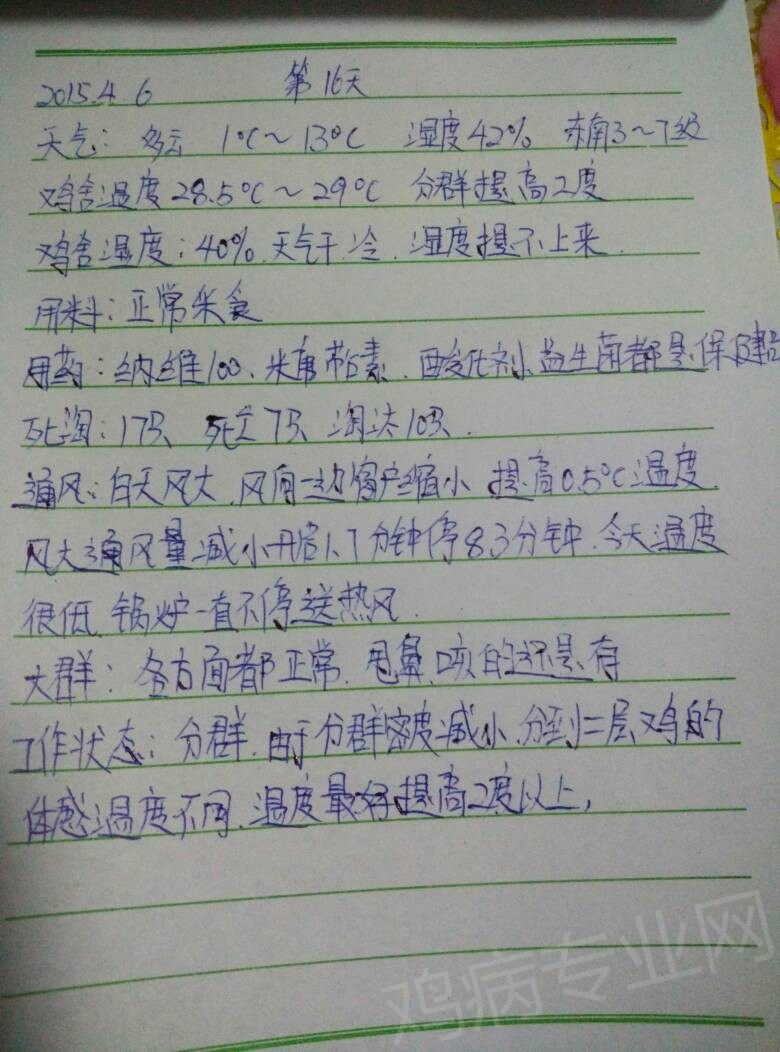 2015.4.6 第16天
天气: 多云 1℃~13℃ 湿度42% 东南3~7级
鸡舍温度28.5℃~29℃ 分群提高2度
鸡舍湿度:40%.天气干.冷.湿度提不上来.
用料:正常采食
用药:纳维100.米康黏素.酸化剂.益生菌都是保健
死淘:17只 死亡7只 淘汰10只.
通风:白天风大.风向一边窗户缩小 提高0.5℃温度.
风大通风量减小开启1.7分钟停8.3分钟.今天温度
很低.锅炉一直不停送热风.
大群:各方面都正常.甩鼻.咳的还是有
工作状态:分群.由于分群密度减小.分到二层鸡的
体感温度不同.温度最好提高2度以上,
鸡病专业网